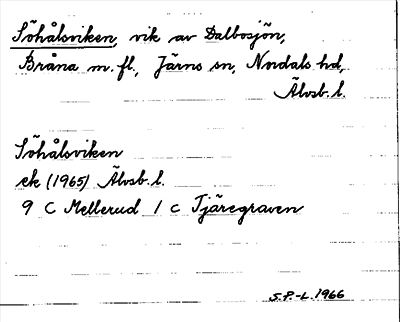 Söhålsviken, vik av Dalbosjön,
Bråna m. fl., Järns sn, Nordals hd,
Älvsb. l.
Söhålsviken
ek (1965) Älvsb. l.
9 C Mellerud 1 c Tjäregraven
S.P.-L. 1966